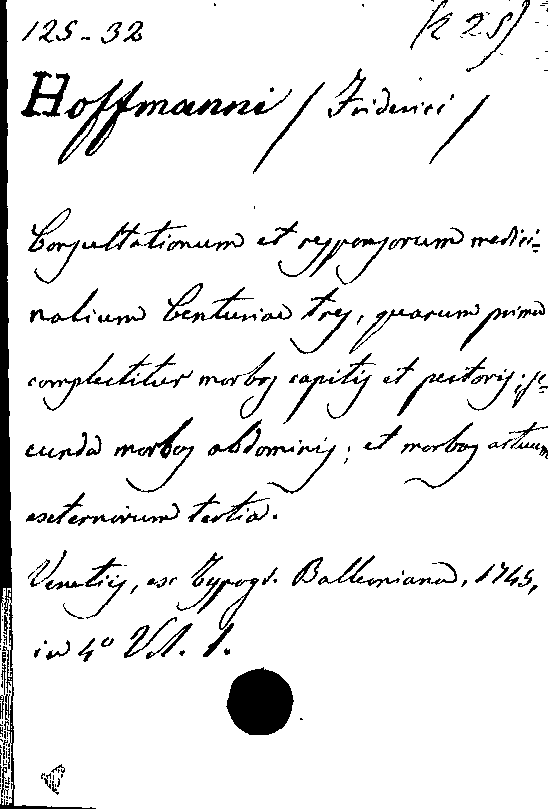 125-32
(R 25)
Hoffmanni / Friderici /
Consultationum et responsorum medici-
nalium Centuriae tres, quarum prima
complectitur morbos capitis et pectoris; se-
cunda morbos abdominis; et morbos artuum
externorum tertia.
Venetiis, ex Typogr. Balleoniana, 1745,
in 4º Vol. 1.